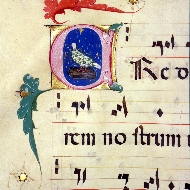 CRe do
rem no strum